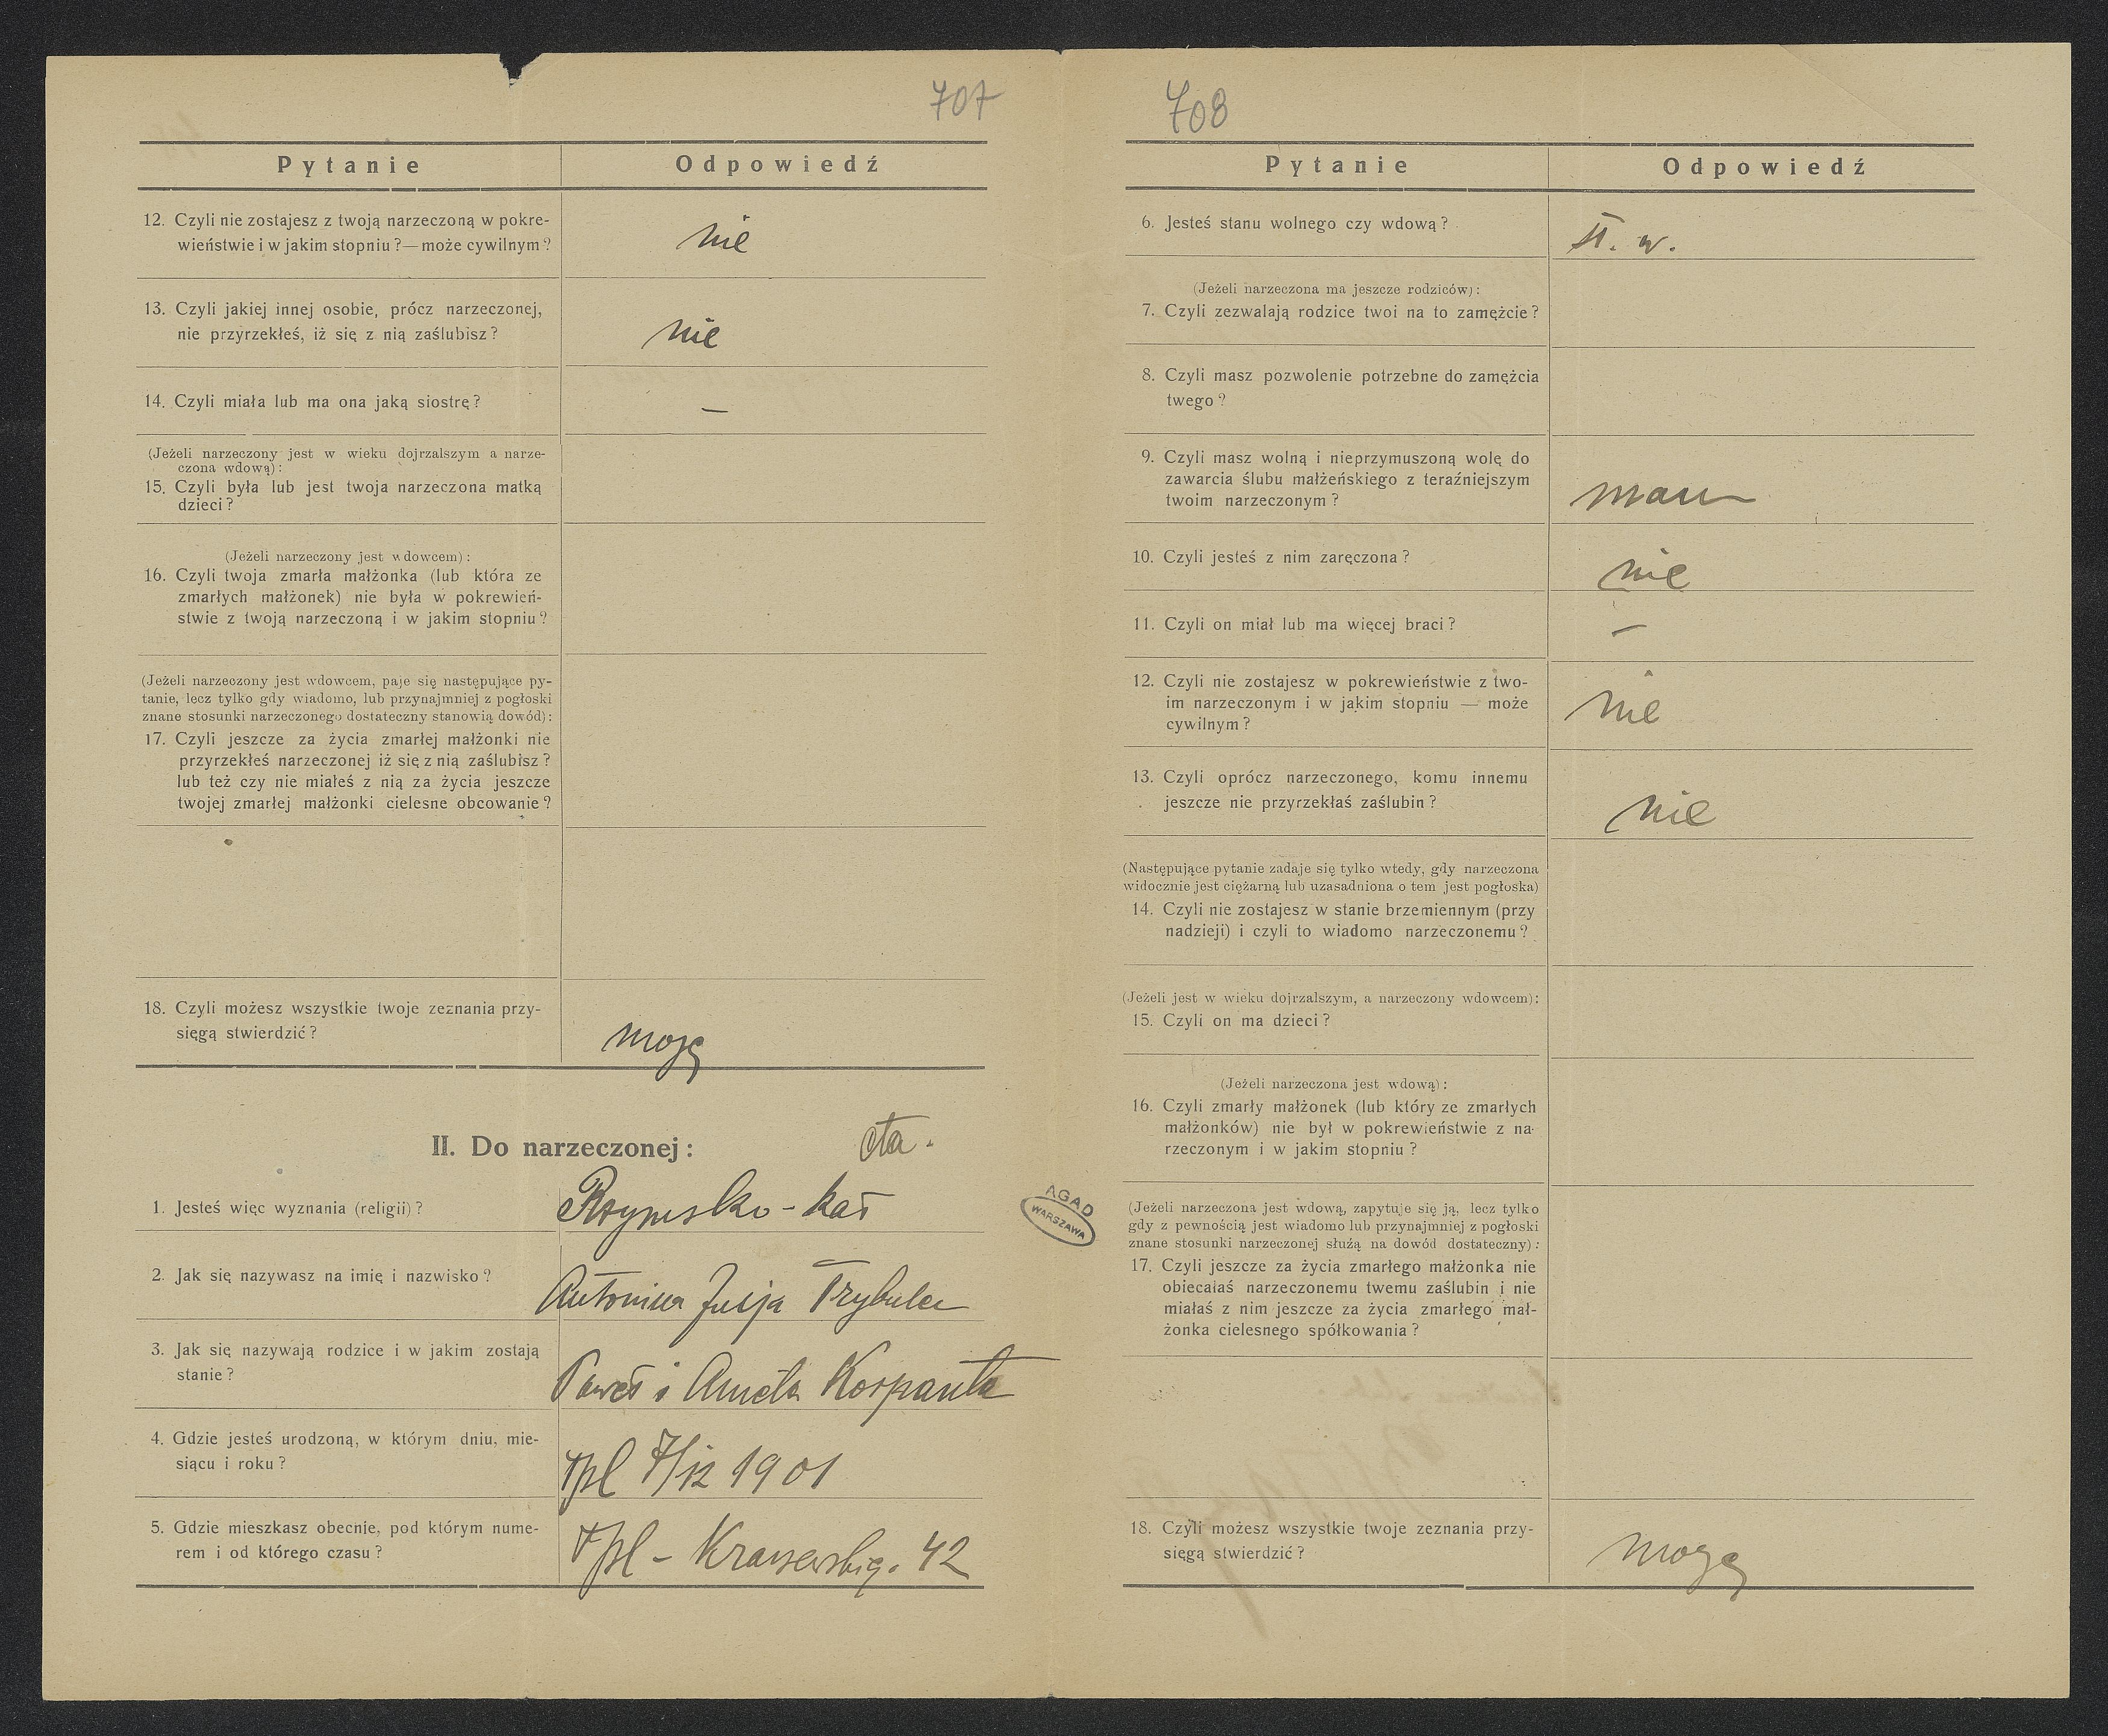 707
Pytanie Odpowiedź
12. Czyli nie zostajesz z twoją narzeczoną w pokre-
wieństwie i w jakim stopniu?—może cywilnym?
nie
13. Czyli jakiej innej osobie, prócz narzeczonej,
nie przyrzekłeś, iż się z nią zaślubisz?
nie
14. Czyli miała lub ma ona jaką siostrę?
—
(Jeżeli narzeczony jest w wieku dojrzalszym a narze-
czona wdową):
15. Czyli była lub jest twoja narzeczona matką
dzieci?
(Jeżeli narzeczony jest wdowcem):
16. Czyli twoja zmarła małżonka (lub która ze
zmarłych małżonek) nie była w pokrewień-
stwie z twoją narzeczoną i w jakim stopniu?
(Jeżeli narzeczony jest wdowcem, paje się następujące py-
tanie, lecz tylko gdy wiadomo, lub przynajmniej z pogłoski
znane stosunki narzeczonego dostateczny stanowią dowód):
17. Czyli jeszcze za życia zmarłej małżonki nie
przyrzekłeś narzeczonej iż się z nią zaślubisz?
lub też czy nie miałeś z nią za życia jeszcze
twojej zmarłej małżonki cielesne obcowanie?
18. Czyli możesz wszystkie twoje zeznania przy-
sięgą stwierdzić?
mogę
II. Do narzeczonej:
1. Jesteś więc wyznania (religii)?
Rzymsko-kat
2. Jak się nazywasz na imię i nazwisko?
Antonina Trybulec
3. Jak się nazywają rodzice i w jakim zostają
stanie?
Paweł i Aniela Korpanta
4. Gdzie jesteś urodzoną, w którym dniu, mie-
siącu i roku?
Tpl 7/12 1901
5. Gdzie mieszkasz obecnie, pod którym nume-
rem i od którego czasu?
Tpl - 42
AGAD
WARSZAWA
708
Pytanie Odpowiedź
6. Jesteś stanu wolnego czy wdową?
st. w.
(Jeżeli narzeczona ma jeszcze rodziców):
7. Czyli zezwalają rodzice twoi na to zamężcie?
8. Czyli masz pozwolenie potrzebne do zamężcia
twego?
9. Czyli masz wolną i nieprzymuszoną wolę do
zawarcia ślubu małżeńskiego z teraźniejszym
twoim narzeczonym?
mam
10. Czyli jesteś z nim zaręczona?
nie
11. Czyli on miał lub ma więcej braci?
—
12. Czyli nie zostajesz w pokrewieństwie z two-
im narzeczonym i w jakim stopniu — może
cywilnym?
nie
13. Czyli oprócz narzeczonego, komu innemu
jeszcze nie przyrzekłaś zaślubin?
nie
(Następujące pytanie zadaje się tylko wtedy, gdy narzeczona
widocznie jest ciężarną lub uzasadniona o tem jest pogłoska)
14. Czyli nie zostajesz w stanie brzemiennym (przy
nadzieji) i czyli to wiadomo narzeczonemu?
(Jeżeli jest w wieku dojrzalszym, a narzeczony wdowcem):
15. Czyli on ma dzieci?
(Jeżeli narzeczona jest wdową):
16. Czyli zmarły małżonek (lub który ze zmarłych
małżonków) nie był w pokrewieństwie z na-
rzeczonym i w jakim stopniu?
(Jeżeli narzeczona jest wdową, zapytuje się ją, lecz tylko
gdy z pewnością jest wiadomo lub przynajmniej z pogłoski
znane stosunki narzeczonej służą na dowód dostateczny):
17. Czyli jeszcze za życia zmarłego małżonka nie
obiecałaś narzeczonemu twemu zaślubin i nie
miałaś z nim jeszcze za życia zmarłego mał-
żonka cielesnego spółkowania?
18. Czyli możesz wszystkie twoje zeznania przy-
sięgą stwierdzić?
mogę